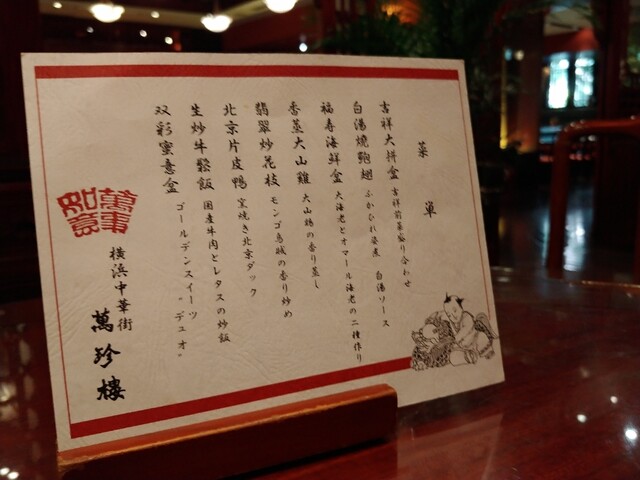 菜單
吉祥大拼盆 吉祥前菜盛り合わせ
白湯燒鮑翅 ふかひれ姿煮 白湯ソース
福寿海鮮盒 大海老とオマール海老の二種作り
香蒸大山雞 大山鶏の香り蒸し
翡翠炒花枝 モンゴ烏賊の香り炒め
北京片皮鴨 窯焼き北京ダック
生炒牛鬆飯 国産牛肉とレタスの炒飯
双彩蜜意盒 ゴールデンスイーツ“デュオ”
萬事如意
横浜中華街
萬珍樓